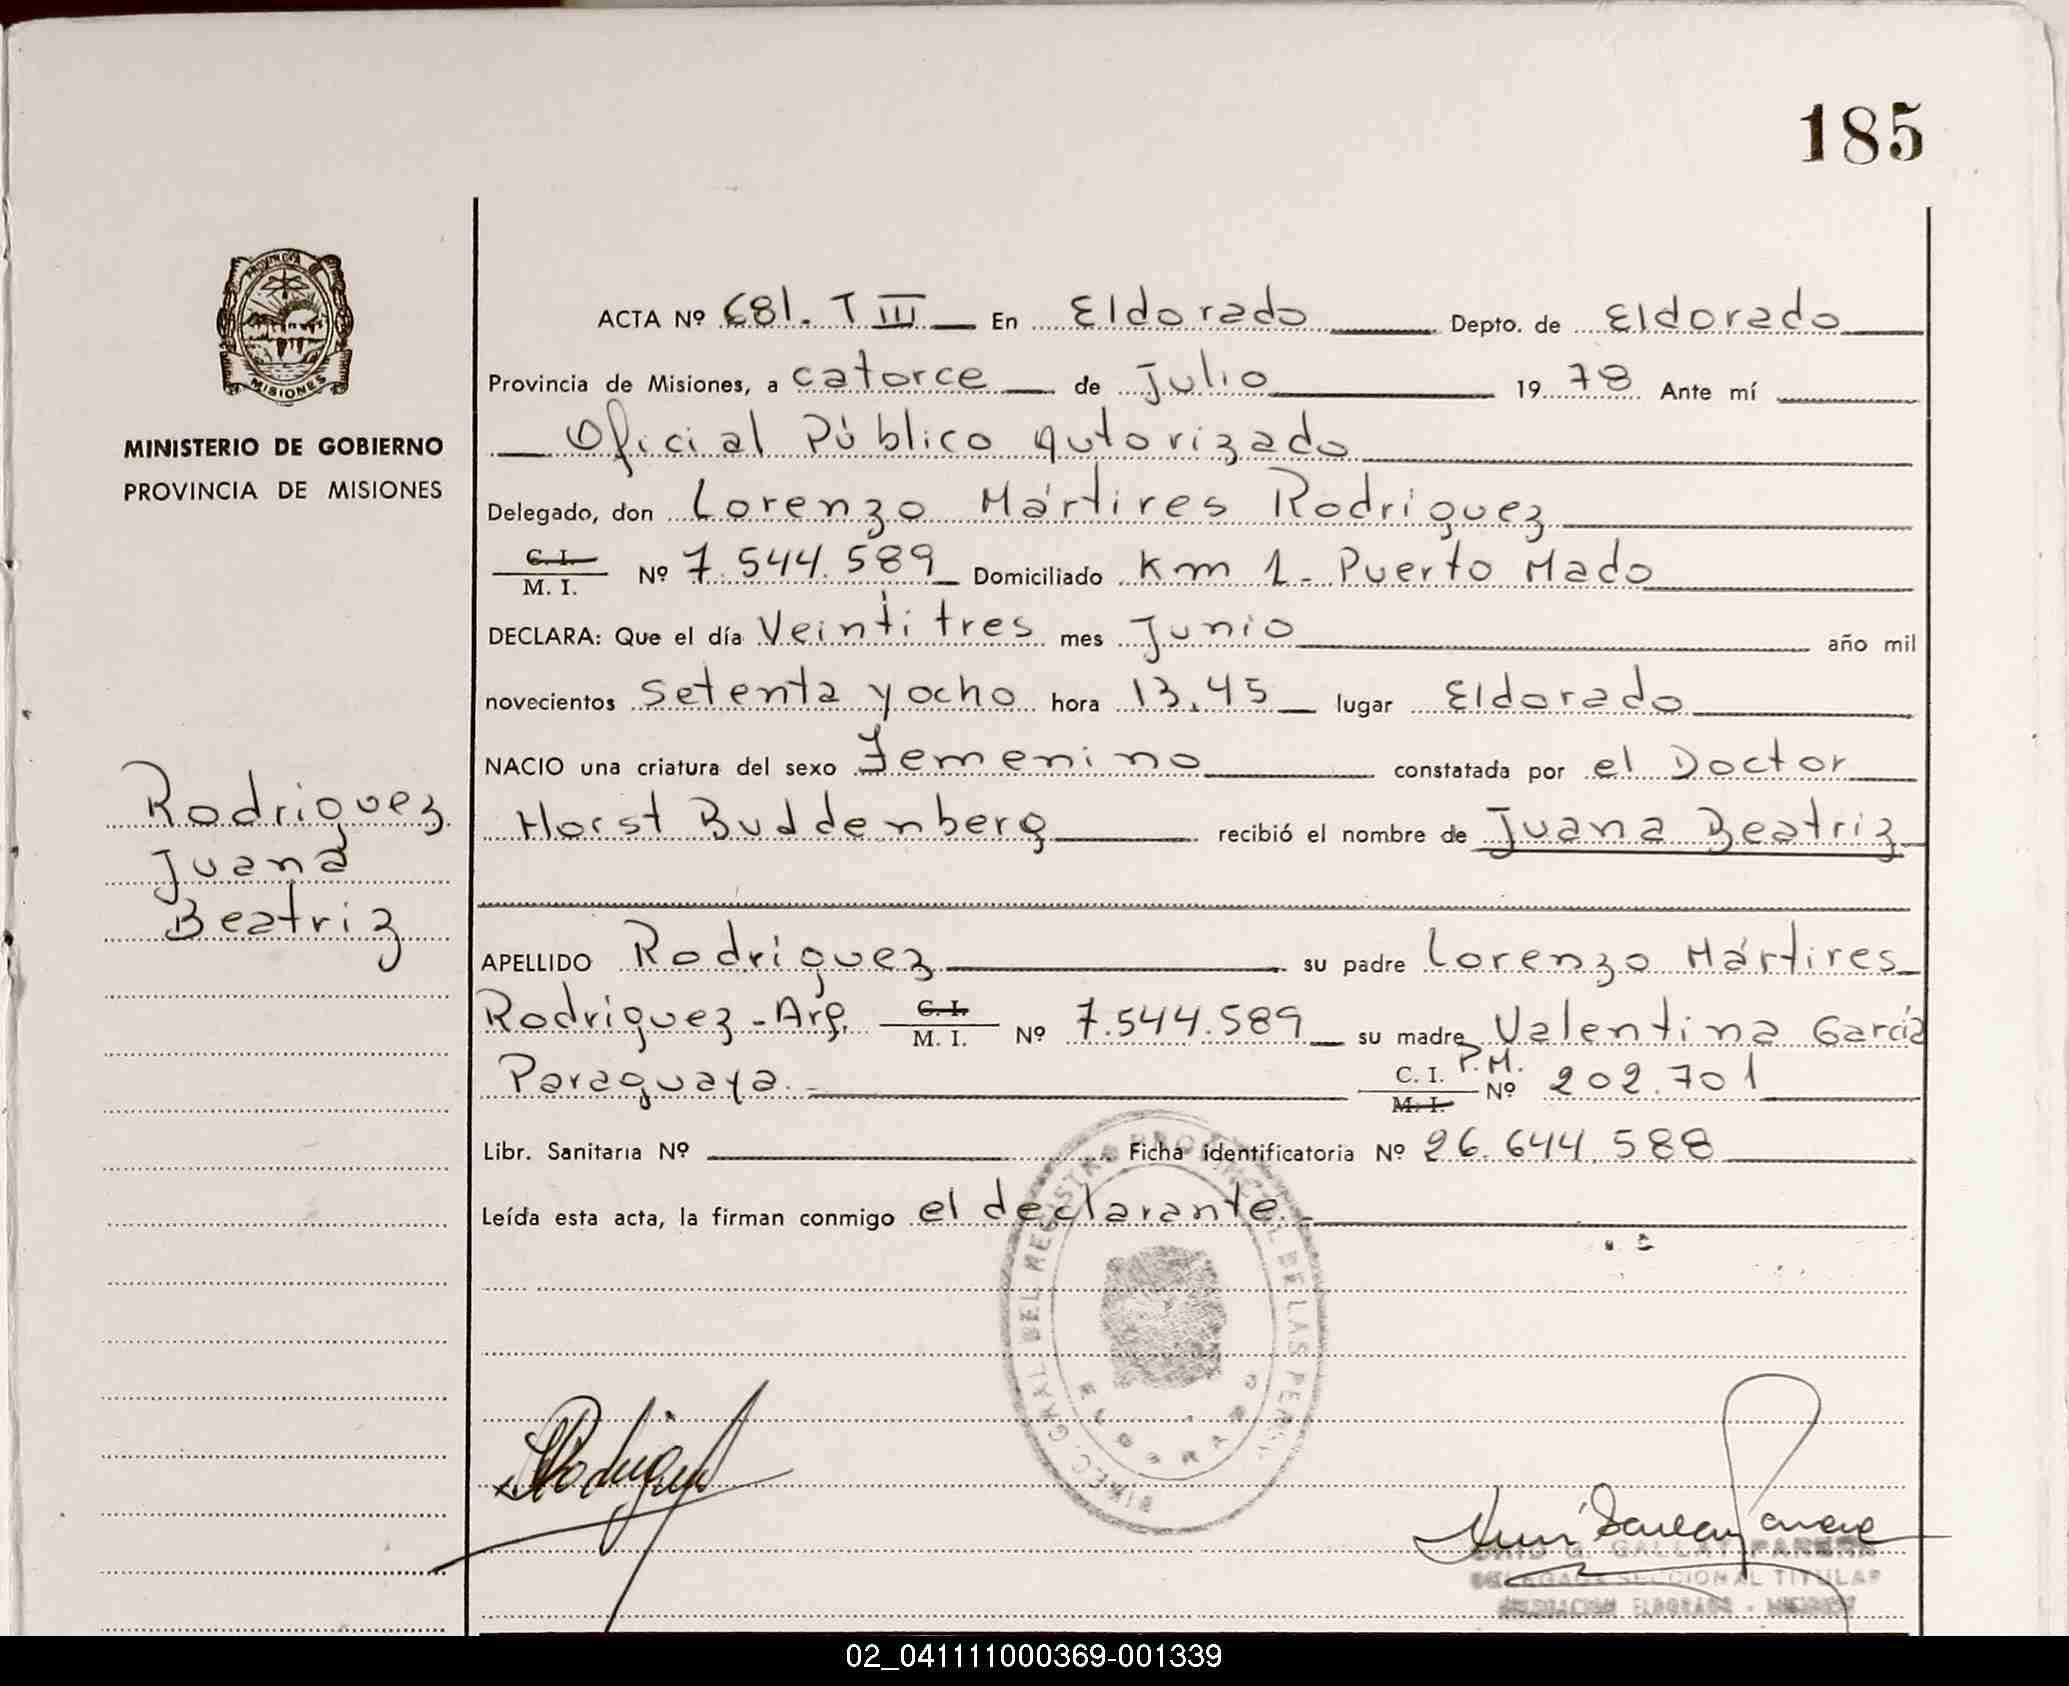 185
PROVINCIA D
MISIONES
MINISTERIO DE GOBIERNO
PROVINCIA DE MISIONES
ACTA Nº 681. T III En Eldorado Depto. de Eldorado
Provincia de Misiones, a catorce de Julio 1978 Ante mí
Oficial Público autorizado
Delegado, don Lorenzo Mártires Rodriguez
C. I.
M. I. Nº 7.544.589 Domiciliado Km 1 - Puerto Mado
DECLARA: Que el día Veintitres mes Junio año mil
novecientos setenta y ocho hora 13,45 lugar Eldorado
NACIO una criatura del sexo Femenino constatada por el Doctor
Horst Buddenberg recibió el nombre de Juana Beatriz
Rodriguez
Juana
Beatriz
APELLIDO Rodriguez su padre Lorenzo Mártires
Rodriguez - Arg. C. I. M. I. Nº 7.544.589 su madre Valentina García
Paraguaya. - C. I. M. I. P.M. Nº 202.701
Libr. Sanitaria Nº Ficha identificatoria Nº 26.644.588
Leída esta acta, la firman conmigo el declarante. -
DIREC. GRAL. DEL REGISTRO PROVINCIAL DE LAS PERS.
ELDORADO
LRodriguez
G. GALLAY PARERA
DELEGADA SECCIONAL TITULAR
ELDORADO - MISIONES
02_041111000369-001339